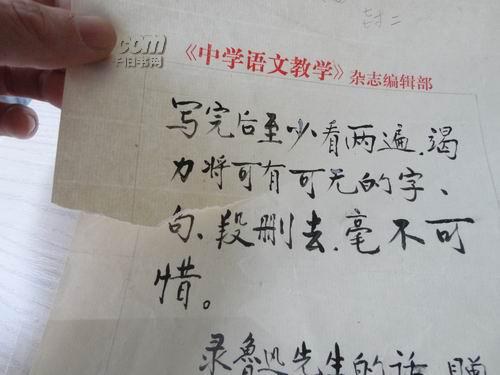 封二
.com
千旧书网
《中学语文教学》杂志编辑部
写完后至少看两遍,竭
力将可有可无的字、
句、段删去,毫不可
惜。
录鲁迅先生的话,赠